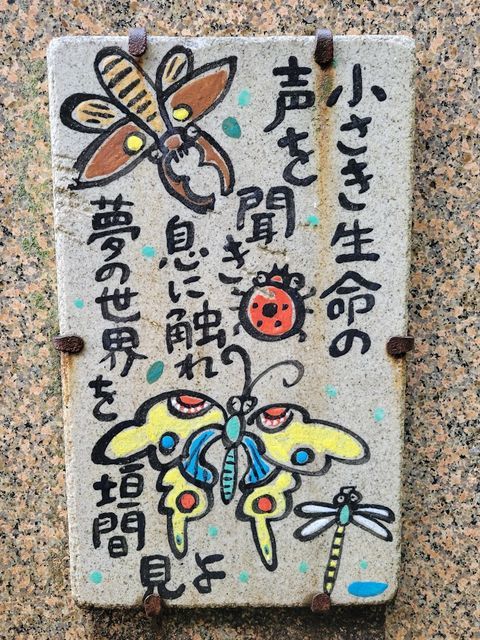 小さき生命の
声を
聞き
息に触れ
夢の世界を
垣間
見よ